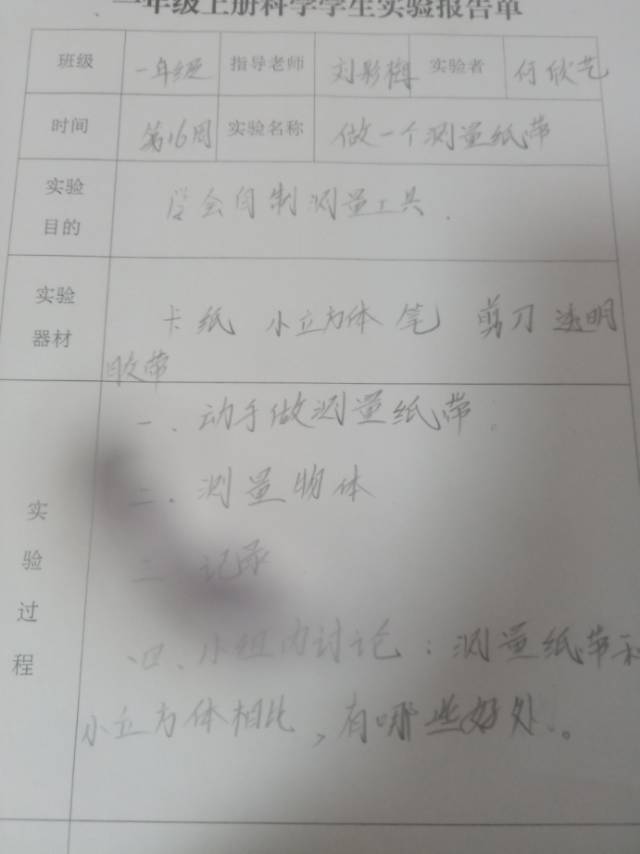 一年级上册科学学生实验报告单
班级 一年级 指导老师 刘影梅 实验者 付欣艺
时间 第16周 实验名称 做一个测量纸带
实验目的 学会自制测量工具.
实验器材 卡纸 小立方体 笔 剪刀 透明
胶带
实验过程
一、动手做测量纸带.
二、测量物体
三 记录
四、小组内讨论:测量纸带和
小立方体相比,有哪些好处。